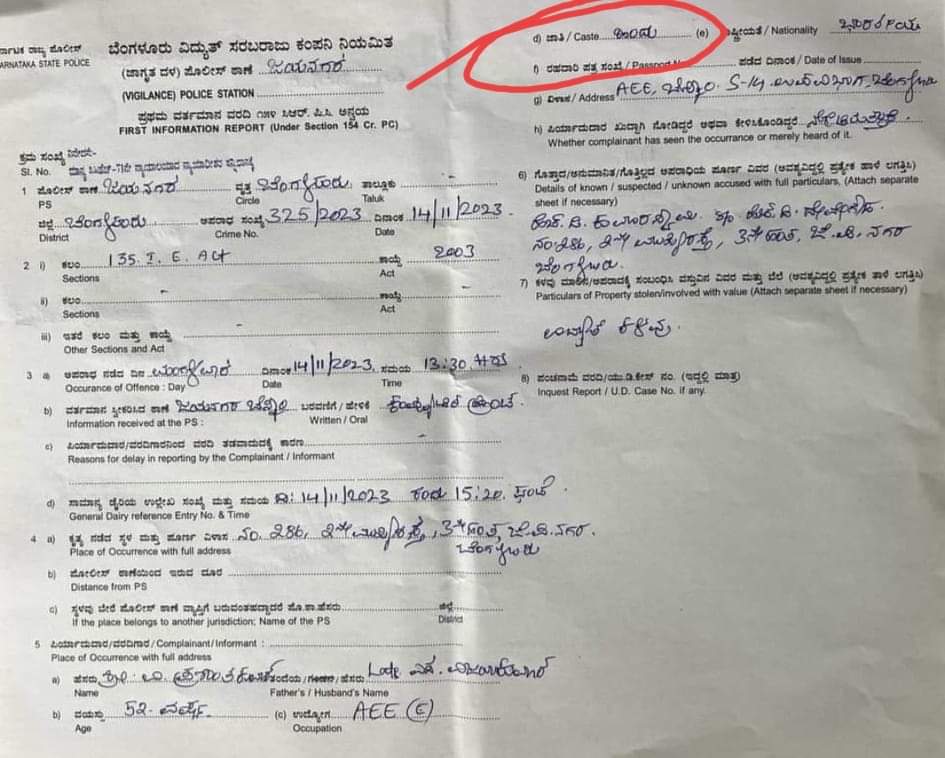 ರ್ನಾಟಕ ರಾಜ್ಯ ಪೊಲೀಸ್
ARNATAKA STATE POLICE
ಬೆಂಗಳೂರು ವಿದ್ಯುತ್ ಸರಬರಾಜು ಕಂಪನಿ ನಿಯಮಿತ
(ಜಾಗೃತ ದಳ) ಪೊಲೀಸ್ ಠಾಣೆ ಜಯನಗರ
(VIGILANCE) POLICE STATION
ಪ್ರಥಮ ವರ್ತಮಾನ ವರದಿ ೧೫೪ ಸಿಆರ್. ಪಿ.ಸಿ ಅನ್ವಯ
FIRST INFORMATION REPORT (Under Section 154 Cr. PC)
ಕ್ರಮ ಸಂಖ್ಯೆ
Sl. No.
1 ಪೊಲೀಸ್ ಠಾಣೆ ಜಯನಗರ ವೃತ್ತ ಬೆಂಗಳೂರು ತಾಲ್ಲೂಕು -
PS Circle Taluk
ಜಿಲ್ಲೆ ಬೆಂಗಳೂರು ಅಪರಾಧ ಸಂಖ್ಯೆ 325/2023 ದಿನಾಂಕ 14/11/2023.
District Crime No. Date
2 i) ಕಲಂ 135. I. E. Act ಕಾಯ್ದೆ 2003
Sections Act
ii) ಕಲಂ - ಕಾಯ್ದೆ -
Sections Act
iii) ಇತರೆ ಕಲಂ ಮತ್ತು ಕಾಯ್ದೆ -
Other Sections and Act
3 a) ಅಪರಾಧ ನಡೆದ ದಿನ ಮಂಗಳವಾರ ದಿನಾಂಕ 14/11/2023, ಸಮಯ 13:30
Occurance of Offence : Day Date Time
b) ವರ್ತಮಾನ ಸ್ವೀಕರಿಸಿದ ಠಾಣೆ ಜಯನಗರ ಬೆವಿಕಂ ಬರವಣಿಗೆ/ಹೇಳಿಕೆ
Information received at the PS : Written / Oral
c) ಪಿರ್ಯಾದುದಾರ/ವರದಿಗಾರನಿಂದ ವರದಿ ತಡವಾದುದಕ್ಕೆ ಕಾರಣ -
Reasons for delay in reporting by the Complainant / Informant
d) ಸಾಮಾನ್ಯ ಡೈರಿಯ ಉಲ್ಲೇಖ ಸಂಖ್ಯೆ ಮತ್ತು ಸಮಯ ದಿ: 14/11/2023 ರಂದು 15:20 ಘಂಟೆ.
General Dairy reference Entry No. & Time
4 a) ಕೃತ್ಯ ನಡೆದ ಸ್ಥಳ ಮತ್ತು ಪೂರ್ಣ ವಿಳಾಸ ನಂ. 286, 2ನೇ ಮುಖ್ಯರಸ್ತೆ, 3ನೇ ಹಂತ, ಜೆ.ಪಿ.ನಗರ.
Place of Occurrence with full address ಬೆಂಗಳೂರು
b) ಪೋಲೀಸ್ ಠಾಣೆಯಿಂದ ಇರುವ ದೂರ
Distance from PS
c) ಸ್ಥಳವು ಬೇರೆ ಪೊಲೀಸ್ ಠಾಣೆ ವ್ಯಾಪ್ತಿಗೆ ಬರುವಂತಹದ್ದಾದರೆ ಪೊ.ಠಾ.ಹೆಸರು ಜಿಲ್ಲೆ
If the place belongs to another jurisdiction; Name of the PS District
5 ಪಿರ್ಯಾದುದಾರ/ವರದಿಗಾರ / Complainant/ Informant :
Place of Occurrence with full address
a) ಹೆಸರು ಶ್ರೀ: ಪ್ರಶಾಂತ ಕುಮಾರ್ ತಂದೆಯ/ಗಂಡನ/ಹೆಸರು Late
Name Father's / Husband's Name
b) ವಯಸ್ಸು 52- ವರ್ಷ. (c) ಉದ್ಯೋಗ AEE (E)
Age Occupation
d) ಜಾತಿ / Caste ಹಿಂದು (e) ರಾಷ್ಟ್ರೀಯತೆ / Nationality ಭಾರತೀಯ
f) ರಹದಾರಿ ಪತ್ರ ಸಂಖ್ಯೆ / Passport N ಪಡೆದ ದಿನಾಂಕ / Date of Issue
g) ವಿಳಾಸ / Address AEE, ಬೆವಿಕಂ. S-14. ಉಪವಿಭಾಗ, ಬೆಂಗಳೂರು
h) ಪಿರ್ಯಾದುದಾರ ಖುದ್ದಾಗಿ ನೋಡಿದ್ದರೆ ಅಥವಾ ಕೇಳಿಸಿಕೊಂಡಿದ್ದರೆ
Whether complainant has seen the occurrance or merely heard of it.
6) ಗೊತ್ತಾದ/ಅನುಮಾನಿತ/ಗೊತ್ತಿಲ್ಲದ ಅಪರಾಧಿಯ ಪೂರ್ಣ ವಿವರ (ಅವಶ್ಯವಿದ್ದಲ್ಲಿ ಪ್ರತ್ಯೇಕ ಹಾಳೆ ಲಗತ್ತಿಸಿ)
Details of known / suspected / unknown accused with full particulars, (Attach separate
sheet if necessary)
ಹೆಚ್. ಡಿ. ಕುಮಾರಸ್ವಾಮಿ. S/o ಹೆಚ್. ಡಿ. ದೇವೇಗೌಡ.
ನಂ:286, 2ನೇ ಮುಖ್ಯರಸ್ತೆ, 3ನೇ ಹಂತ, ಜೆ.ಪಿ. ನಗರ
ಬೆಂಗಳೂರು.
7) ಕಳವು ಮಾಡಿದ/ಅಪರಾಧಕ್ಕೆ ಸಂಬಂಧಿಸಿದ ವಸ್ತುವಿನ ವಿವರ ಮತ್ತು ಬೆಲೆ (ಅವಶ್ಯವಿದ್ದಲ್ಲಿ ಪ್ರತ್ಯೇಕ ಹಾಳೆ ಲಗತ್ತಿಸಿ)
Particulars of Property stolen/involved with value (Attach separate sheet if necessary)
ವಿದ್ಯುತ್ ಕಳವು.
8) ಪಂಚನಾಮೆ ವರದಿ/ಯು.ಡಿ.ಕೇಸ್ ನಂ. (ಇದ್ದಲ್ಲಿ ಮಾತ್ರ)
Inquest Report / U.D. Case No. if any.